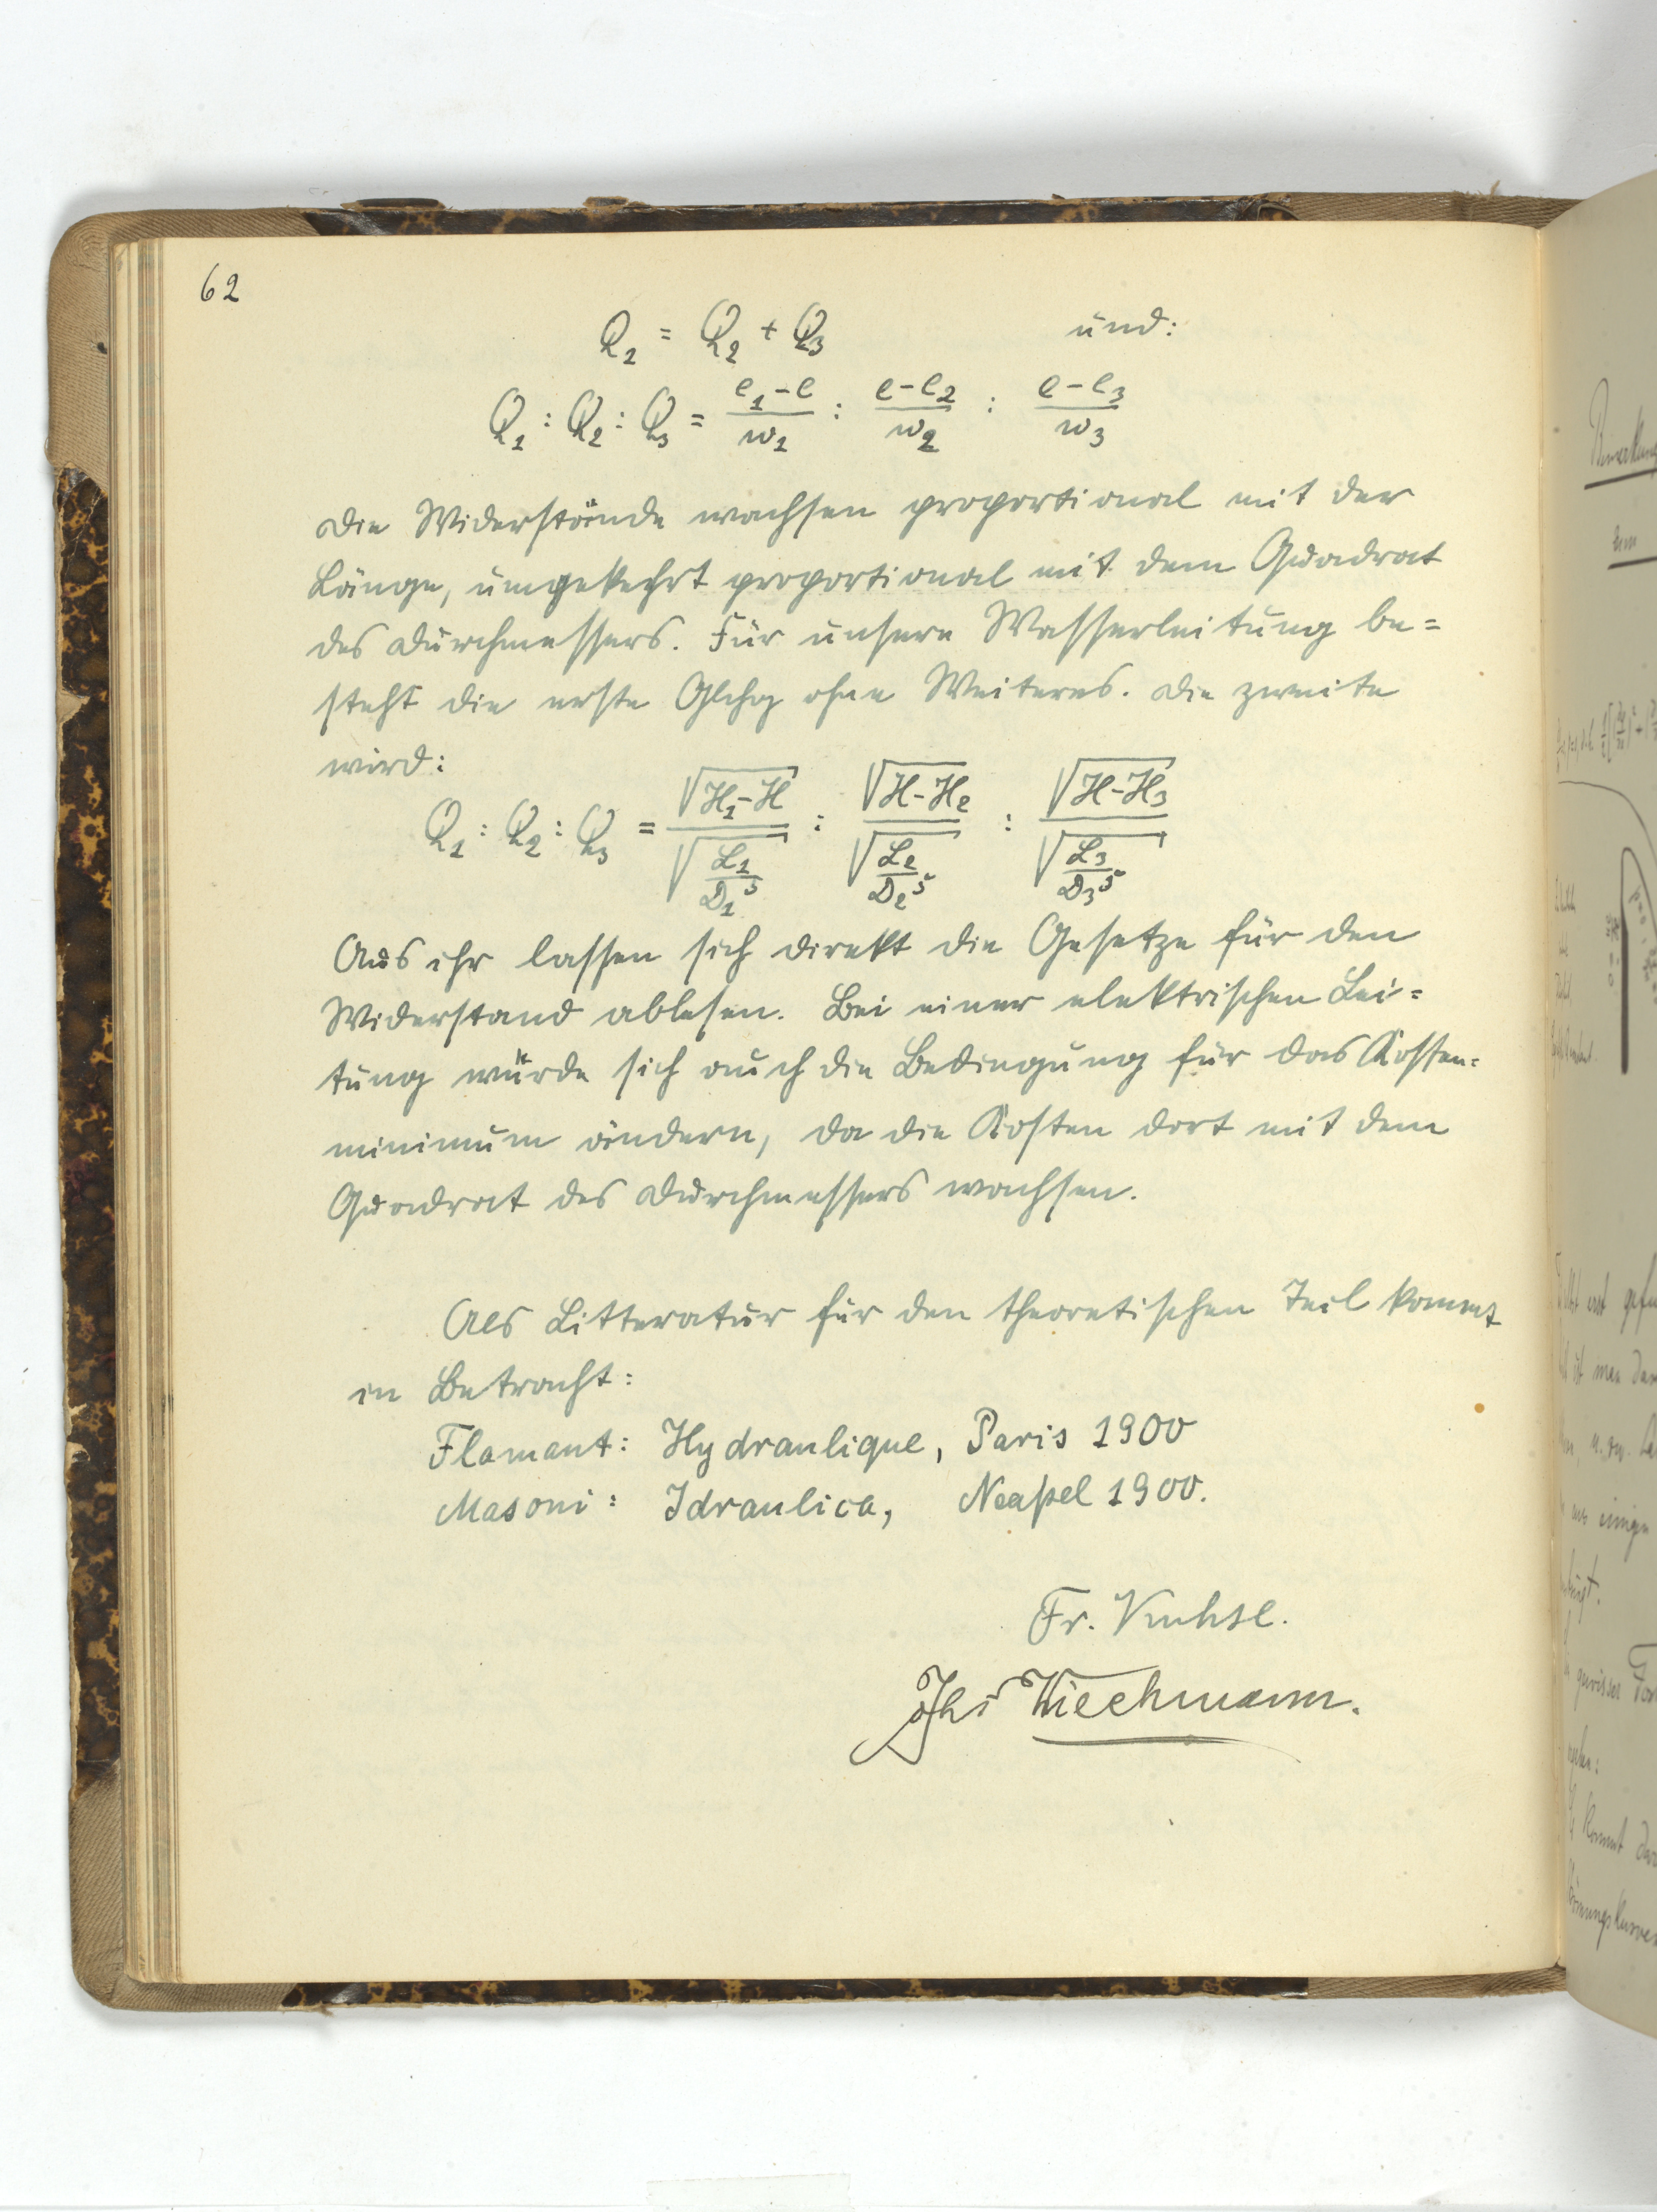 62
Q₁ = Q₂ + Q₃ und:
Q₁ : Q₂ : Q₃ = (e₁-e)/w₁ : (e-e₂)/w₂ : (e-e₃)/w₃
Die Widerstände wachsen proportional mit der
Länge, umgekehrt proportional mit dem Quadrat
des Durchmessers. Für unsere Wasserleitung be=
steht die erste Glchg ohne Weiteres. Die zweite
wird:
Q₁ : Q₂ : Q₃ = √(H₁-H)/√(L₁/D₁⁵) : √(H-H₂)/√(L₂/D₂⁵) : √(H-H₃)/√(L₃/D₃⁵)
Aus ihr lassen sich direkt die Gesetze für den
Widerstand ablesen. Bei einer elektrischen Lei=
tung würde sich auch die Bedingung für das Kosten=
minimum ändern, da die Kosten dort mit dem
Quadrat des Durchmessers wachsen.
Als Litteratur für den theoretischen Teil kommt
in Betracht:
Flamant: Hydraulique, Paris 1900
Masoni: Idraulica, Neapel 1900.
Fr.